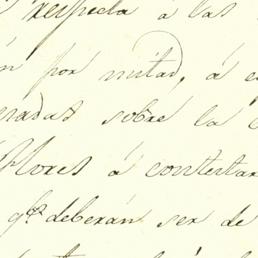 respecta á las
n por mitad, á e
eradas sobre la
Flores á contestar
q.e deberán ser de